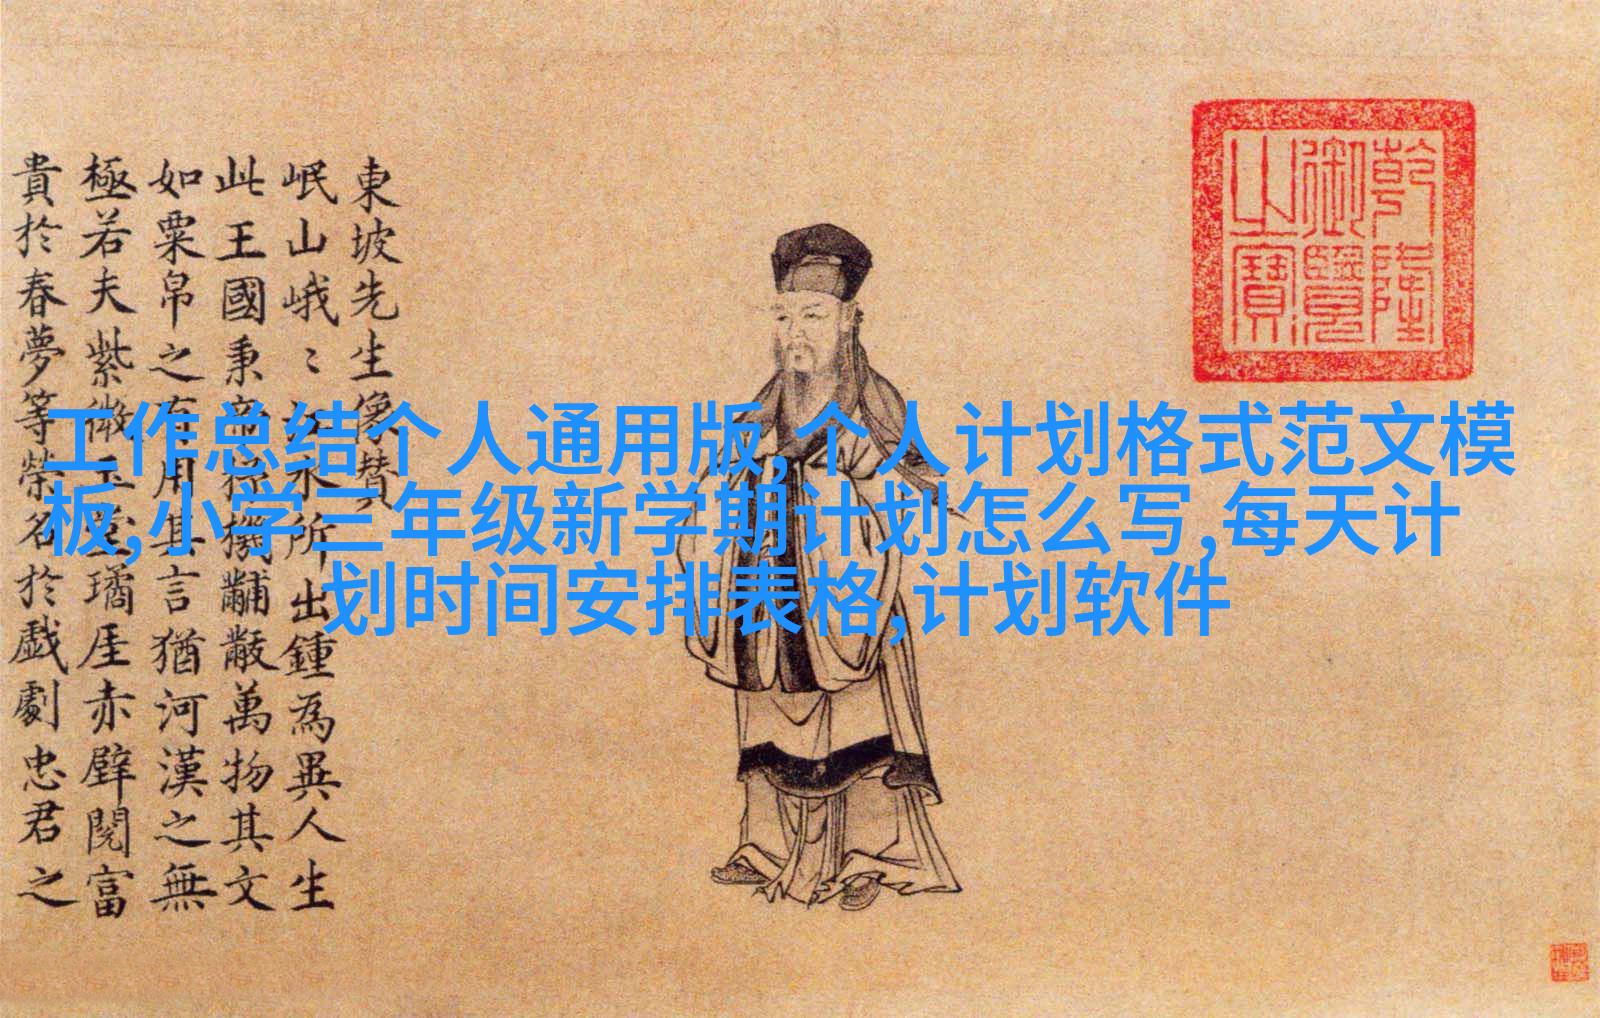 乾隆
御覽
之寶
東坡先生像賛
岷山峨〻江水所出鍾為異人生
此王國秉帝杼機黼黻萬物其文
如粟帛之有用其言猶河漢之無
極若夫紫微玉堂璚厓赤壁閱富
貴於春夢等榮名於戯劇忠君之
工作总结个人通用版,个人计划格式范文模
板,小学三年级新学期计划怎么写,每天计
划时间安排表格,计划软件